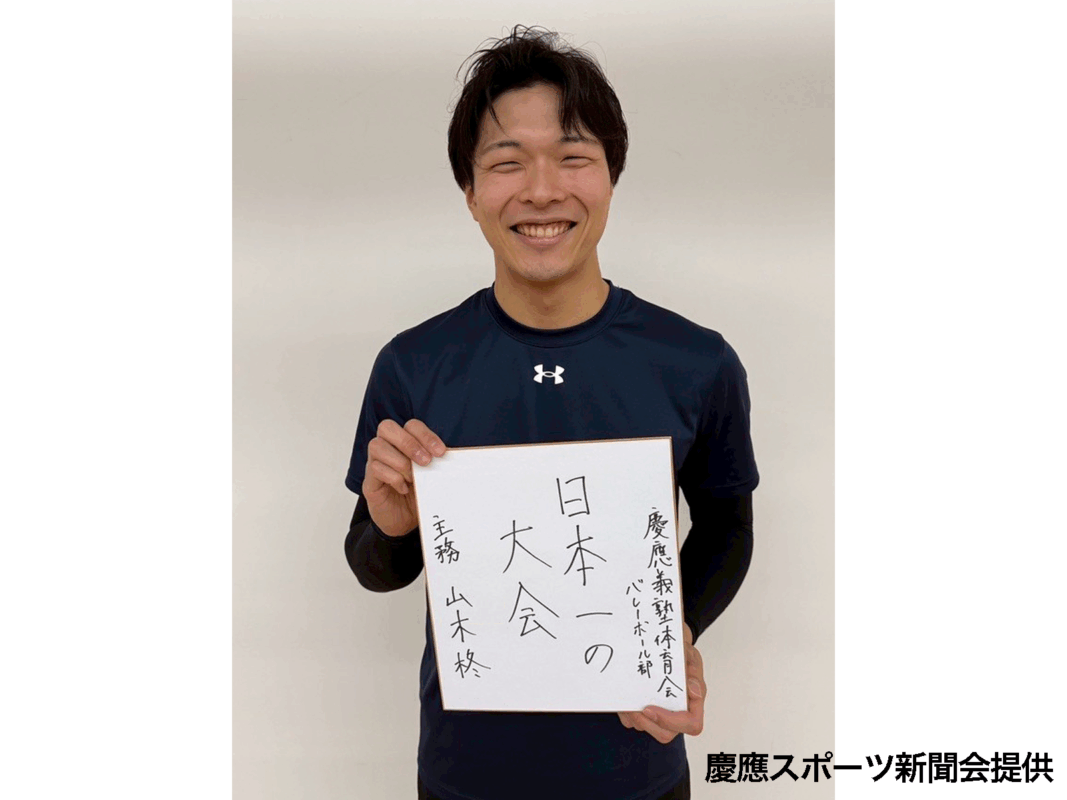 慶應義塾体育会
バレーボール部
日本一の
大会
主務 山木柊
慶應スポーツ新聞会提供